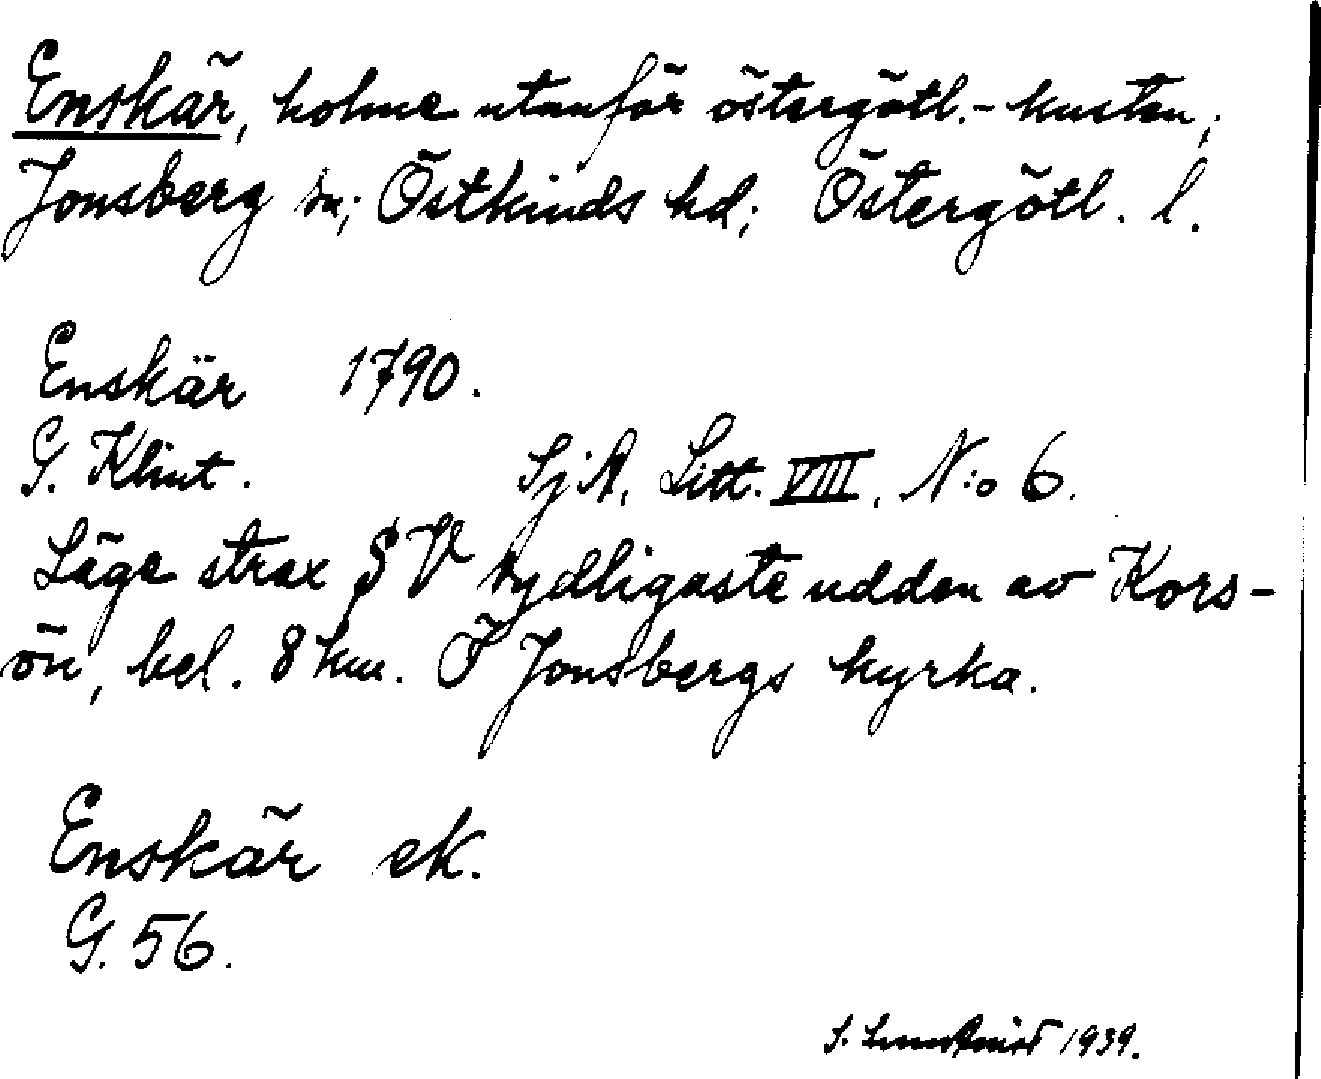 Enskär, holme utanför östergötl.-kusten;
Jonsberg sn; Östkinds hd; Östergötl. l.
Enskär 1790.
G. Klint. SjA. Litt. VIII, N:o 6.
Läge strax SV sydligaste udden av Kors-
ön, bel. 8 km. Ö Jonsbergs kyrka.
Enskär ek.
G. 56.
S. 1939.